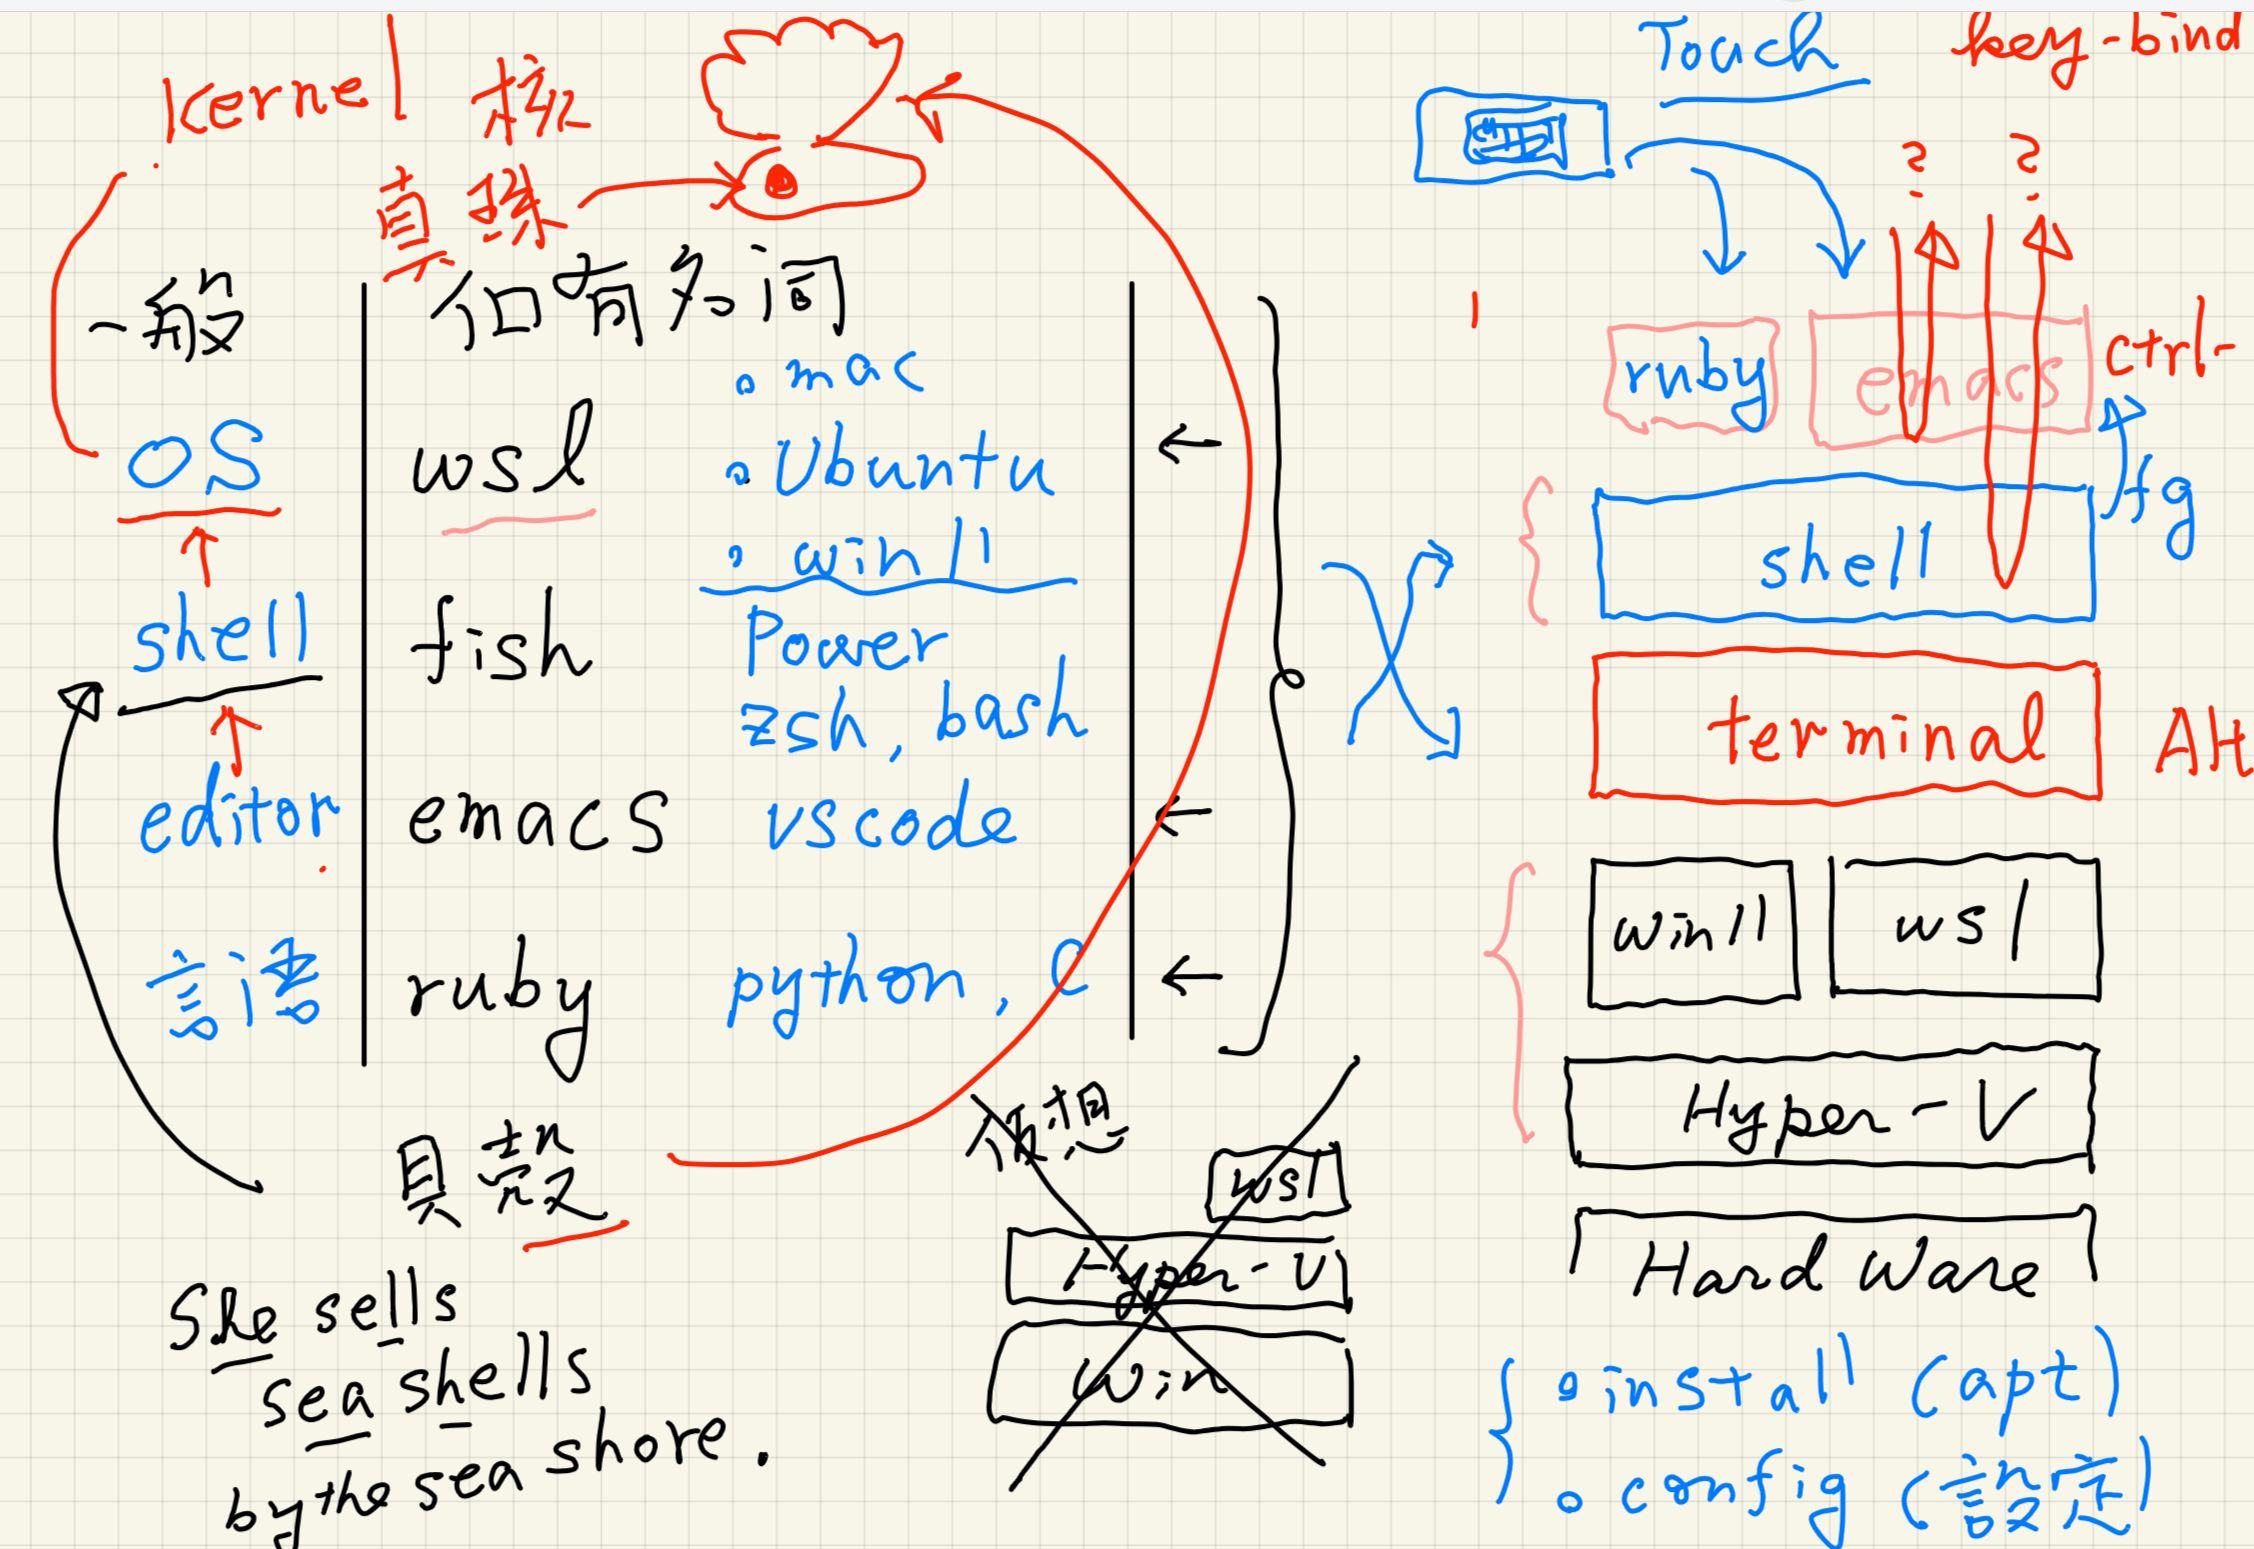 kernel 核
真珠
一般
固有名詞
OS
wsl
mac
Ubuntu
win11
shell
fish
Power
zsh, bash
editor
emacs
vscode
言語
ruby
python, C
貝殻
She sells
sea shells
by the sea shore.
仮想
wsl
Hyper-V
Win
Touch
key-bind
? ?
ruby
emacs
ctrl-
fg
shell
terminal
Alt
win11
wsl
Hyper-V
Hard Ware
install (apt)
config (設定)